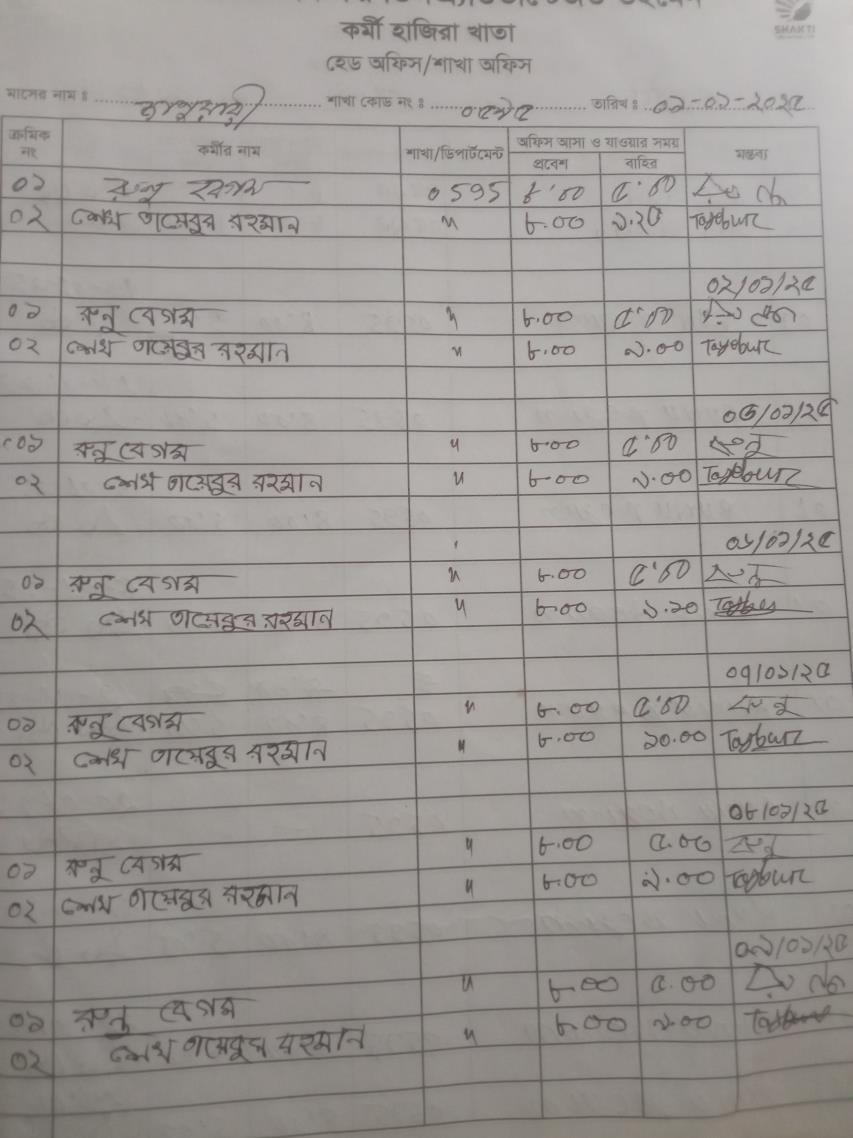 কর্মী হাজিরা খাতা
SHAKTI
হেড অফিস/শাখা অফিস
মাসের নাম : জানুয়ারী শাখা কোড নং : ০৫৯৫ তারিখ : ০১-০১-২০২৫
ক্রমিক নং কর্মীর নাম শাখা/ডিপার্টমেন্ট অফিস আসা ও যাওয়ার সময় মন্তব্য
প্রবেশ বাহির
০১ রুনু বেগম 0595 ৮.০০ ৫.০০
০২ শেখ তায়েবুর রহমান " ৮.০০ ৯.২০ Tayebur
০২/০১/২৫
০১ রুনু বেগম " ৮.০০ ৫.০০
০২ শেখ তায়েবুর রহমান " ৮.০০ ৯.০০ Tayebur
০৫/০১/২৫
০১ রুনু বেগম " ৮.০০ ৫.০০ রুনু
০২ শেখ তায়েবুর রহমান " ৮.০০ ৯.০০ Tayebur
০৬/০১/২৫
০১ রুনু বেগম " ৮.০০ ৫.০০ রুনু
০২ শেখ তায়েবুর রহমান " ৮.০০ ৯.২০
০৭/০১/২৫
০১ রুনু বেগম " ৮.০০ ৫.০০ রুনু
০২ শেখ তায়েবুর রহমান " ৮.০০ ১০.০০ Taybur
০৮/০১/২৫
০১ রুনু বেগম " ৮.০০ ৫.০০ রুনু
০২ শেখ তায়েবুর রহমান " ৮.০০ ৯.০০ Taybur
০৯/০১/২৫
০১ রুনু বেগম " ৮.০০ ৫.০০
০২ শেখ তায়েবুর রহমান " ৮.০০ ৯.০০